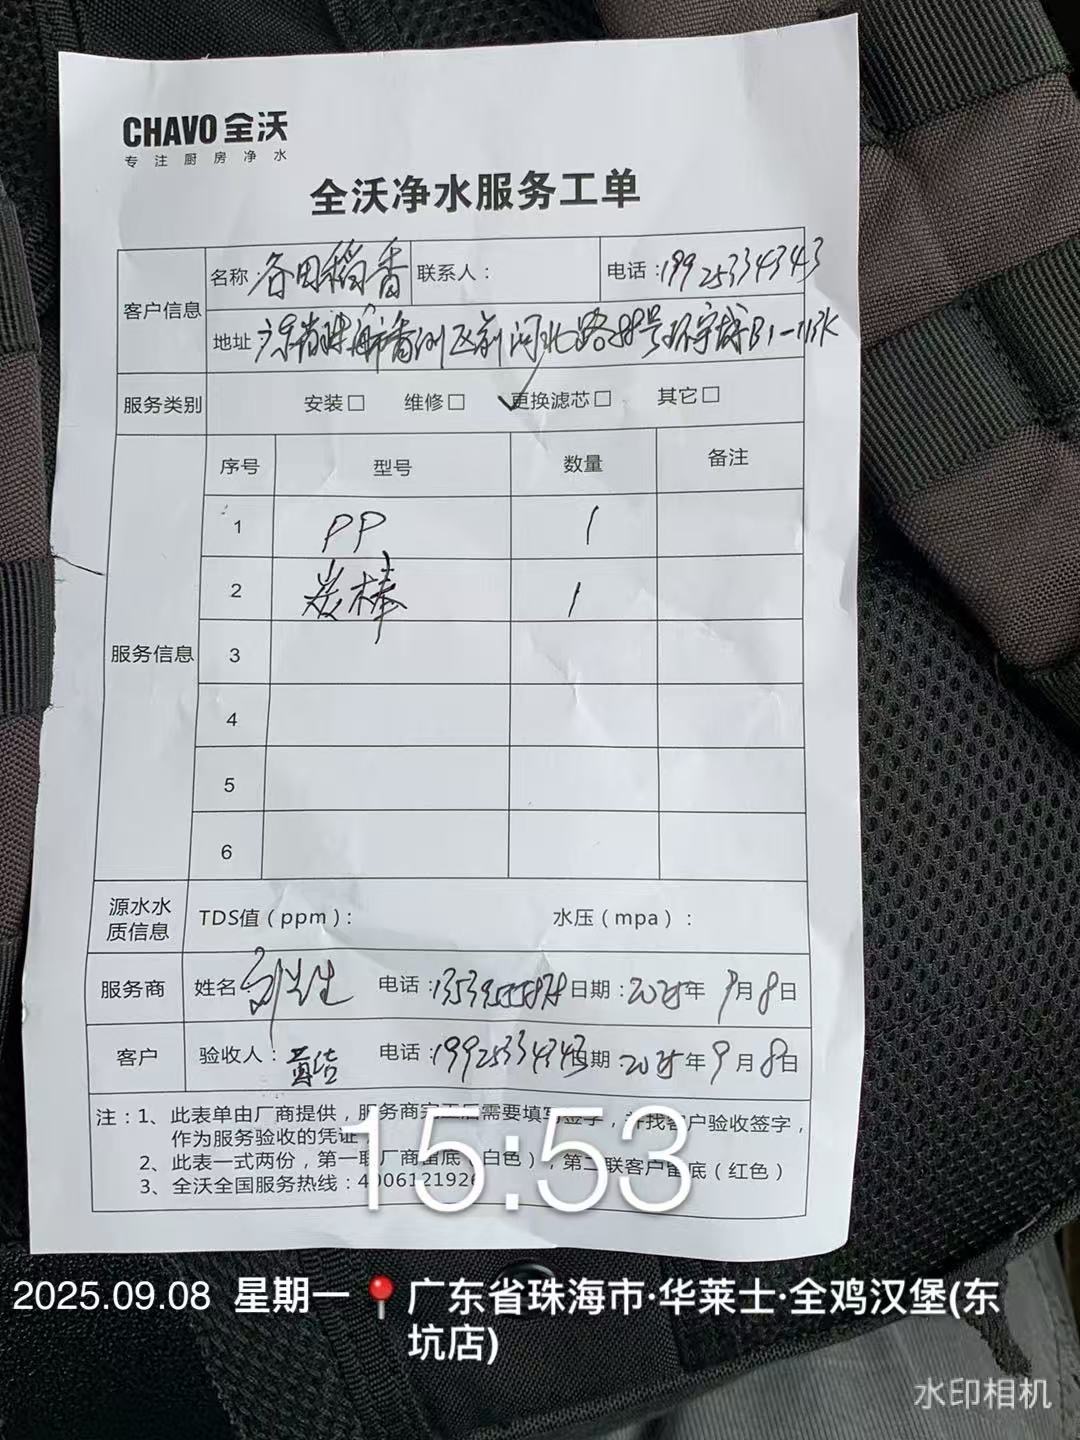 CHAVO 全沃
专注厨房净水
全沃净水服务工单
客户信息 名称：谷田稻香 联系人： 电话：19925334343
地址：广东省珠海市香洲区前河北路88号环宇城B1-
服务类别 安装□ 维修□ ✓更换滤芯□ 其它□
服务信息 序号 型号 数量 备注
1 PP 1
2 炭棒 1
3
4
5
6
源水水质信息 TDS值（ppm）： 水压（mpa）：
服务商 姓名 电话： 日期：2025年9月8日
客户 验收人： 电话：19925334343 日期：2025年9月8日
注：1、此表单由厂商提供，服务商完工后需要填写签字，并找客户验收签字，
作为服务验收的凭证；
2、此表一式两份，第一联厂商留底（白色），第二联客户留底（红色）
3、全沃全国服务热线：4006121926
15:53
2025.09.08 星期一 广东省珠海市·华莱士·全鸡汉堡(东
坑店)
水印相机